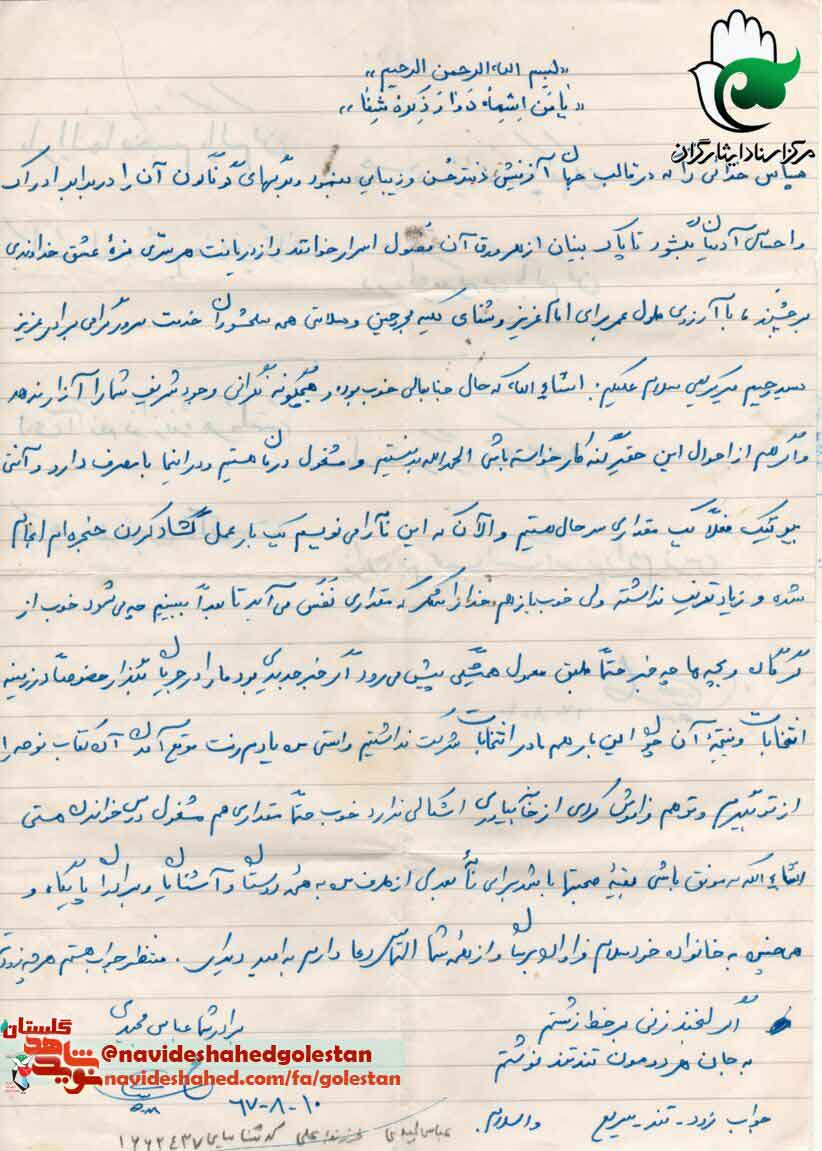 مرکز اسناد ایثارگران
«بسم الله الرحمن الرحیم»
«یا مَن اِسمُهُ دَوا وَ ذِکرُهُ شِفا»
سپاس خدائی را که در قالب جهان آفرینش ذینت حُسن و زیبایی بیفزود و خوبیهای گوناگون آن را در برابر ادراک
و احساس آدمیان بگشود تا پاک بینان از هر ورق آن فصول اسرار خوانند و از دریافت هر سرّی مزهٔ عشق خداوندی
برچشند، با آرزوی طول عمر برای امام عزیز و شفای کلیه مجروحین و سلامتی همه سلحشوران خدمت سرور گرامی برادر عزیز
سید رحیم سلام علیکم. انشاء الله که حال جنابعالی خوب بوده و هیچگونه نگرانی وجود شریف شما را آزار ندهد
و اگر هم از احوال این حقیر گنه کار خواسته باشی الحمدالله بد نیستیم و مشغول درمان هستیم و در اینجا با مصرف دارو و آنتی
بیوتیک فعلاً یک مقداری سرحال هستیم و الآن که این نامه را می نویسم یک بار عمل گشاد کردن حنجره ام انجام
شده و زیاد تعریف نداشته ولی خوب باز هم خدا را شکر که مقداری نَفَس می آید تا بعداً ببینیم چه می شود خوب از
گرگان و بچه ها چه خبر حتماً طبق معمول همیشگی پیش می رود اگر خبر جدیدی بود ما را در جریان بگذار خصوصاً در زمینه
انتخابات و نتیجهٔ آن چون این بار هم ما در انتخابات شرکت نداشتیم راستی من یادم رفت موقع آمدن آن کتاب نوحه را
از تو بگیرم و تو هم فراموش کردی از خانه بیاوری اشکالی ندارد خوب حتماً مقداری هم مشغول درس خواندن هستی
انشاء الله که موفق باشی بقیهٔ صحبتها باشد برای نامه بعدی از طرف من به همهٔ دوستان و آشنایان و برادران پایگاه و
همچنین به خانواده خود سلام فراوان برسان و از همه شما التماس دعا دارم به امید دیدار. منتظر جواب هستم هر چه زودتر
اگر لبخند زنی بر خط زشتم
به جان هر دومون تند تند نوشتم
جواب زود - تند - سریع والسلام.
برادر شما عباس مجیدی
۶۷-۸-۱۰
عباس فرزند علی کد شناسایی ۱۶۶۲۴۳۷
نوید شاهد گلستان
@navideshahedgolestan
navideshahed.com/fa/golestan